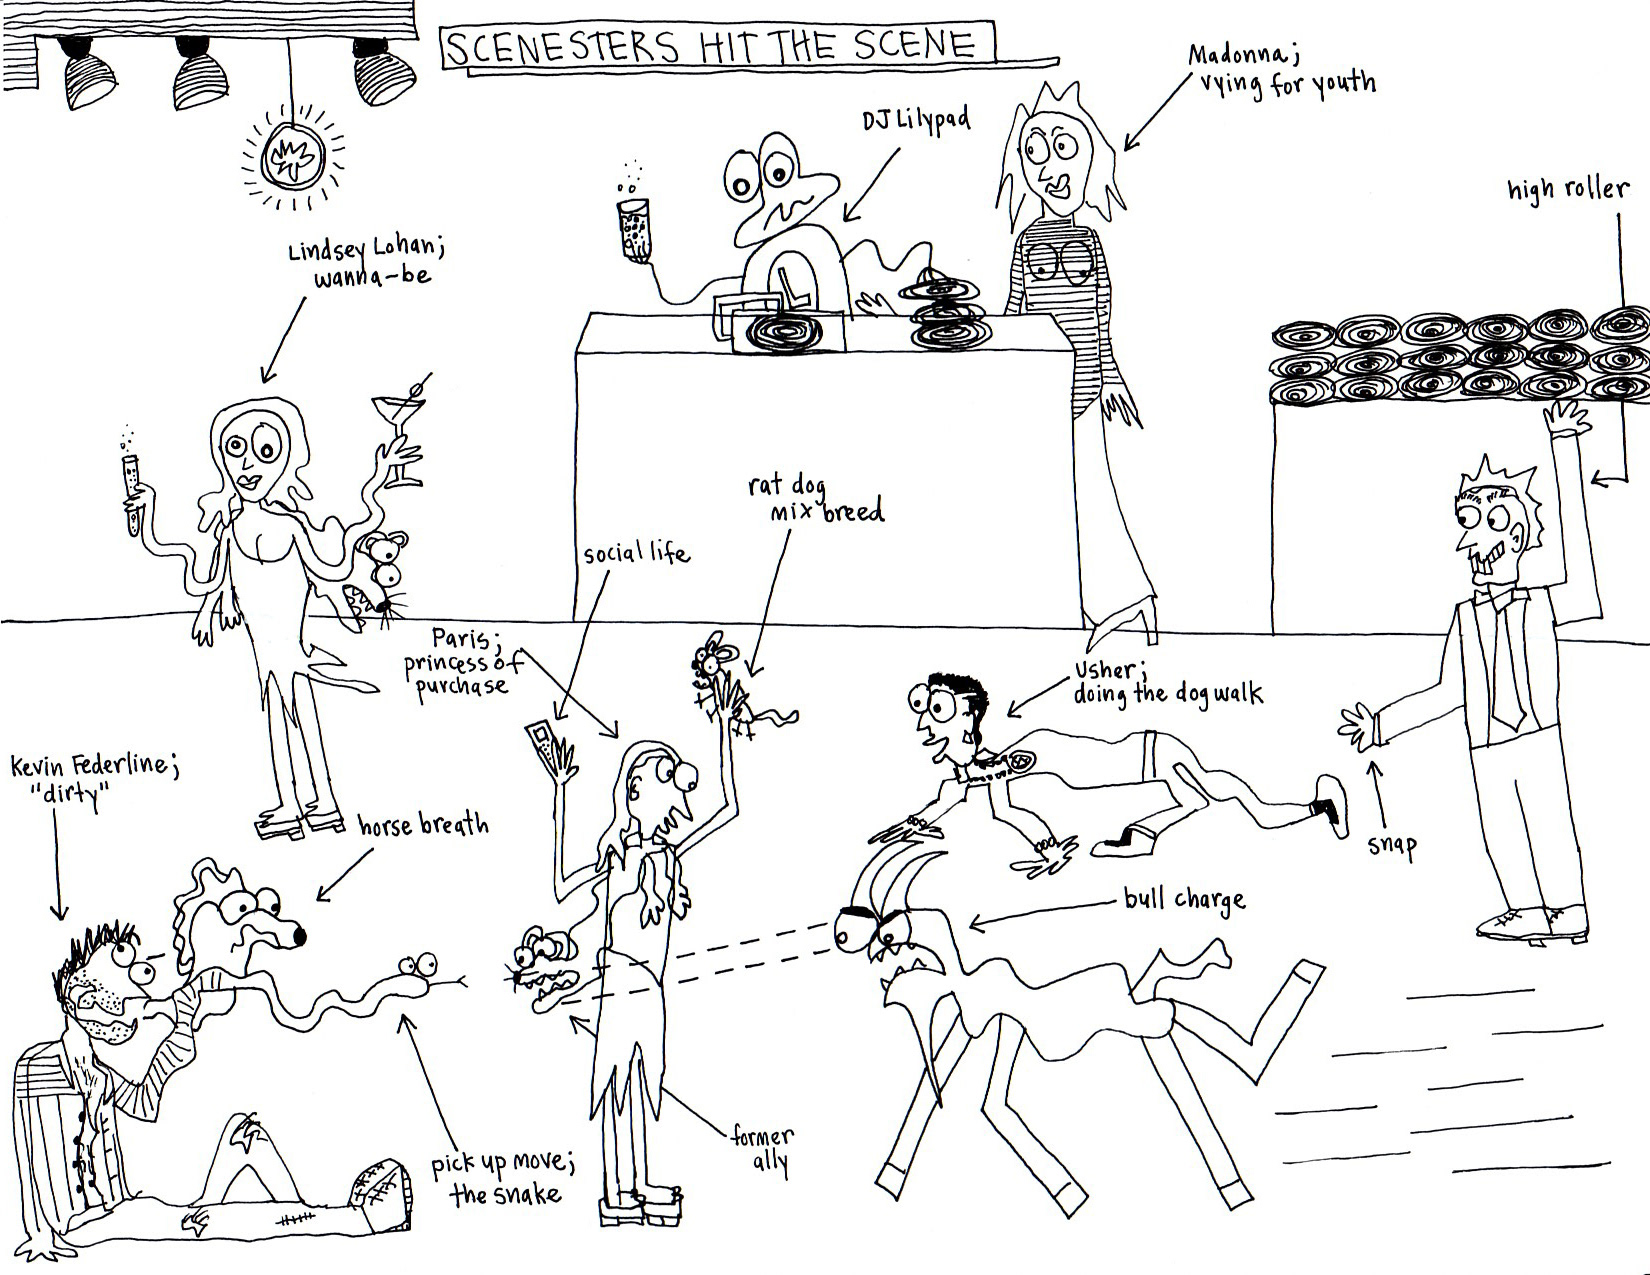 SCENESTERS HIT THE SCENE
Madonna;
vying for youth
DJ Lilypad
high roller
Lindsey Lohan;
wanna-be
L
rat dog
mix breed
social life
Paris;
princess of
purchase
Usher;
doing the dog walk
Kevin Federline;
"dirty"
horse breath
snap
bull charge
former
ally
pick up move;
the snake